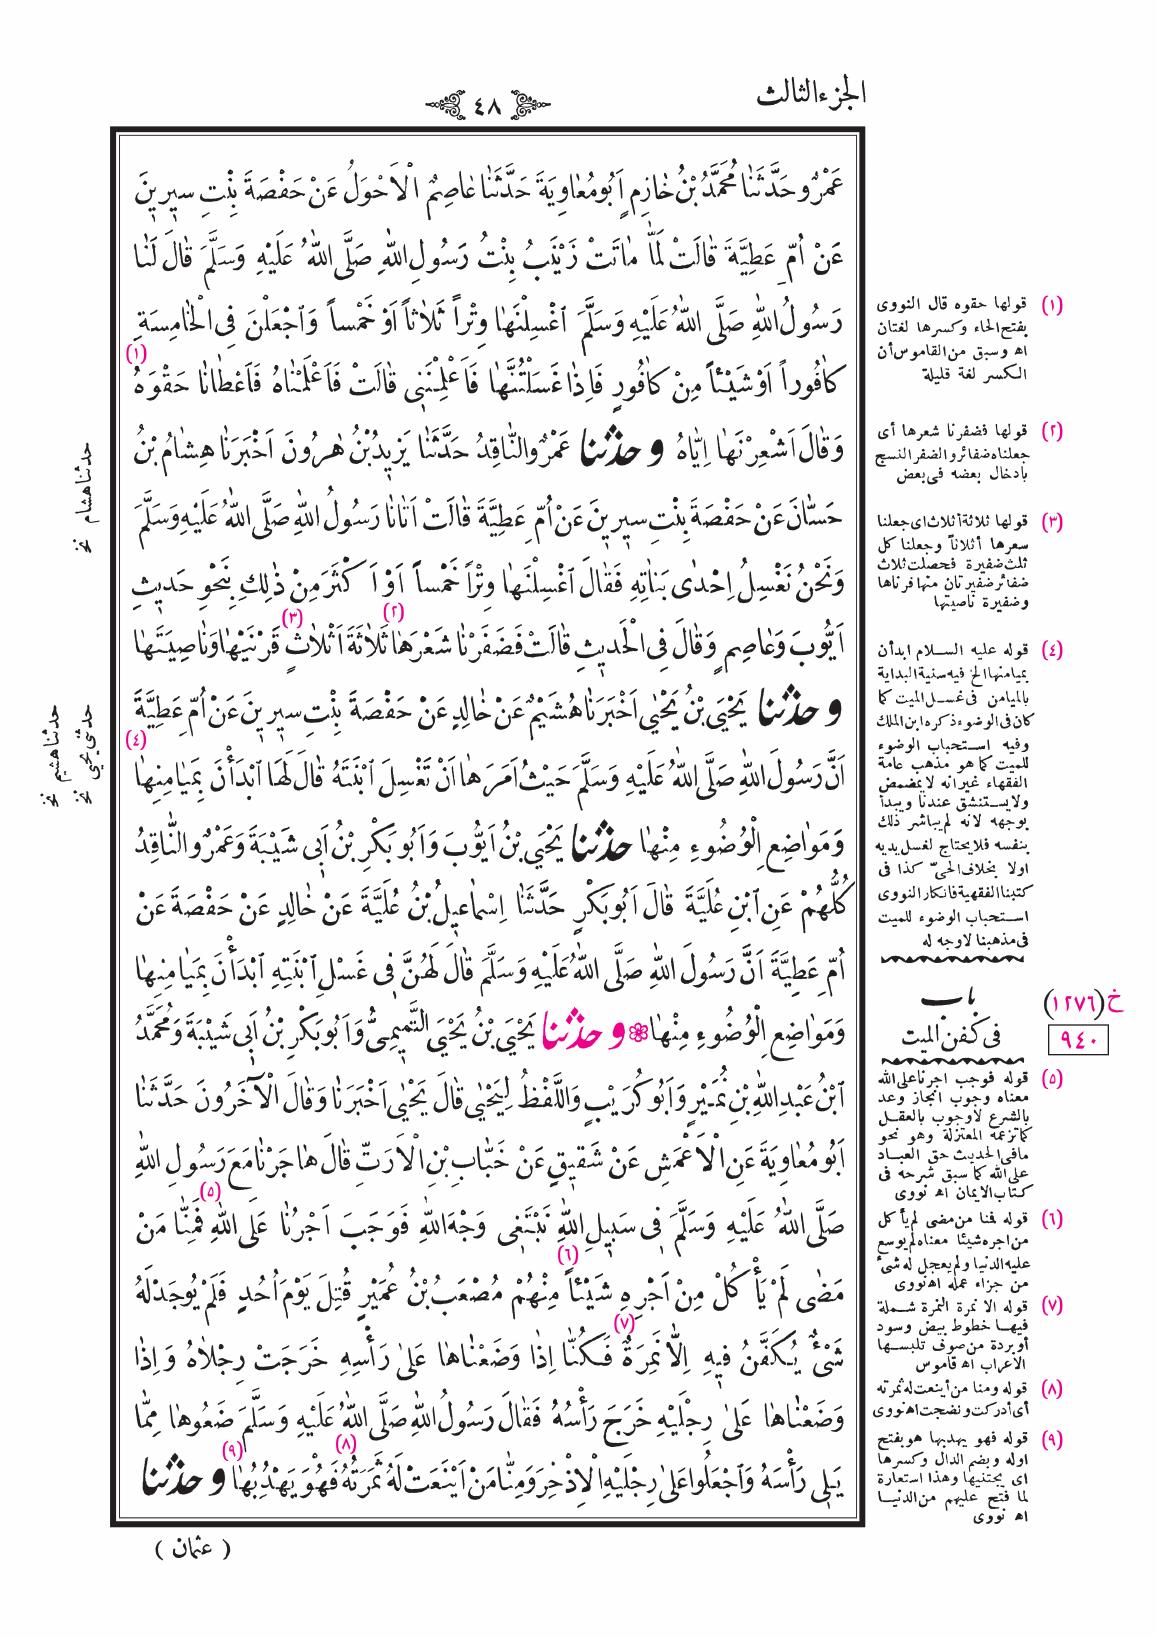 الجزء الثالث
٤٨
عَمْرٌو حَدَّثَنَا مُحَمَّدُ بْنُ خَازِمٍ اَبُو مُعَاوِيَةَ حَدَّثَنَا عَاصِمٌ الْاَحْوَلُ عَنْ حَفْصَةَ بِنْتِ سِيرِينَ
عَنْ اُمِّ عَطِيَّةَ قَالَتْ لَمَّا مَاتَتْ زَيْنَبُ بِنْتُ رَسُولِ اللهِ صَلَّى اللهُ عَلَيْهِ وَسَلَّمَ قَالَ لَنَا
رَسُولُ اللهِ صَلَّى اللهُ عَلَيْهِ وَسَلَّمَ اغْسِلْنَهَا وِتْراً ثَلَاثاً اَوْ خَمْساً وَاجْعَلْنَ فِى الْخَامِسَةِ
كَافُوراً اَوْ شَيْئاً مِنْ كَافُورٍ فَاِذَا غَسَلْتُنَّهَا فَاَعْلِمْنَنِى قَالَتْ فَاَعْلَمْنَاهُ فَاَعْطَانَا حَقْوَهُ (١)
وَقَالَ اَشْعِرْنَهَا اِيَّاهُ و حدثنا عَمْرٌو النَّاقِدُ حَدَّثَنَا يَزِيدُ بْنُ هٰرُونَ اَخْبَرَنَا هِشَامُ بْنُ
حَسَّانَ عَنْ حَفْصَةَ بِنْتِ سِيرِينَ عَنْ اُمِّ عَطِيَّةَ قَالَتْ اَتَانَا رَسُولُ اللهِ صَلَّى اللهُ عَلَيْهِ وَسَلَّمَ
وَنَحْنُ نَغْسِلُ اِحْدٰى بَنَاتِهِ فَقَالَ اغْسِلْنَهَا وِتْراً خَمْساً اَوْ اَكْثَرَ مِنْ ذٰلِكِ بِنَحْوِ حَدِيثِ
اَيُّوبَ وَعَاصِمٍ وَقَالَ فِى الْحَدِيثِ قَالَتْ فَضَفَرْنَا شَعْرَهَا (٢) ثَلَاثَةَ اَثْلَاثٍ (٣) قَرْنَيْهَا وَنَاصِيَتَهَا
و حدثنا يَحْيَى بْنُ يَحْيٰى اَخْبَرَنَا هُشَيْمٌ عَنْ خَالِدٍ عَنْ حَفْصَةَ بِنْتِ سِيرِينَ عَنْ اُمِّ عَطِيَّةَ
اَنَّ رَسُولَ اللهِ صَلَّى اللهُ عَلَيْهِ وَسَلَّمَ حَيْثُ اَمَرَهَا اَنْ تَغْسِلَ ابْنَتَهُ قَالَ لَهَا ابْدَأْنَ بِمَيَامِنِهَا (٤)
وَمَوَاضِعِ الْوُضُوءِ مِنْهَا حدثنا يَحْيَى بْنُ اَيُّوبَ وَاَبُو بَكْرِ بْنُ اَبِى شَيْبَةَ وَعَمْرٌو النَّاقِدُ
كُلُّهُمْ عَنِ ابْنِ عُلَيَّةَ قَالَ اَبُو بَكْرٍ حَدَّثَنَا اِسْمَاعِيلُ بْنُ عُلَيَّةَ عَنْ خَالِدٍ عَنْ حَفْصَةَ عَنْ
اُمِّ عَطِيَّةَ اَنَّ رَسُولَ اللهِ صَلَّى اللهُ عَلَيْهِ وَسَلَّمَ قَالَ لَهُنَّ فِى غَسْلِ ابْنَتِهِ ابْدَأْنَ بِمَيَامِنِهَا
وَمَوَاضِعِ الْوُضُوءِ مِنْهَا و حدثنا يَحْيَى بْنُ يَحْيَى التَّمِيمِىُّ وَاَبُو بَكْرِ بْنُ اَبِى شَيْبَةَ وَمُحَمَّدُ
ابْنُ عَبْدِ اللهِ بْنِ نُمَيْرٍ وَاَبُو كُرَيْبٍ وَاللَّفْظُ لِيَحْيٰى قَالَ يَحْيٰى اَخْبَرَنَا وَقَالَ الْآخَرُونَ حَدَّثَنَا
اَبُو مُعَاوِيَةَ عَنِ الْاَعْمَشِ عَنْ شَقِيقٍ عَنْ خَبَّابِ بْنِ الْاَرَتِّ قَالَ هَاجَرْنَا مَعَ رَسُولِ اللهِ
صَلَّى اللهُ عَلَيْهِ وَسَلَّمَ فِى سَبِيلِ اللهِ نَبْتَغِى وَجْهَ اللهِ فَوَجَبَ اَجْرُنَا عَلَى اللهِ (٥) فَمِنَّا مَنْ
مَضٰى لَمْ يَأْكُلْ مِنْ اَجْرِهِ شَيْئاً (٦) مِنْهُمْ مُصْعَبُ بْنُ عُمَيْرٍ قُتِلَ يَوْمَ اُحُدٍ فَلَمْ يُوجَدْ لَهُ
شَىْءٌ يُكَفَّنُ فِيهِ اِلَّا نَمِرَةٌ (٧) فَكُنَّا اِذَا وَضَعْنَاهَا عَلٰى رَأْسِهِ خَرَجَتْ رِجْلَاهُ وَاِذَا
وَضَعْنَاهَا عَلٰى رِجْلَيْهِ خَرَجَ رَأْسُهُ فَقَالَ رَسُولُ اللهِ صَلَّى اللهُ عَلَيْهِ وَسَلَّمَ ضَعُوهَا مِمَّا
يَلِى رَأْسَهُ وَاجْعَلُوا عَلٰى رِجْلَيْهِ الْاِذْخِرَ وَمِنَّا مَنْ اَيْنَعَتْ لَهُ ثَمَرَتُهُ (٨) فَهُوَ يَهْدِبُهَا (٩) و حدثنا
( عثمان )
(١) قولها حقوه قال النووى
بفتح الحاء وكسرها لغتان
اه وسبق من القاموس أن
الكسر لغة قليلة
(٢) قولها فضفرنا شعرها أى
جعلناه ضفائر والضفر النسج
بادخال بعضه فى بعض
(٣) قولها ثلاثة أثلاث اى جعلنا
سعرها أثلاثاً وجعلنا كل
ثلث ضفيرة فحصلت ثلاث
ضفائر ضفيرتان منها قرناها
وضفيرة ناصيتها
(٤) قوله عليه السلام ابدأن
بميامنها الخ فيه سنية البداية
بالميامن فى غسل الميت كما
كان فى الوضوء ذكره ابن الملك
وفيه استحباب الوضوء
للميت كما هو مذهب عامة
الفقهاء غير انه لا يمضمض
ولا يستنشق عندنا ويبدأ
بوجهه لانه لم يباشر ذلك
بنفسه فلا يحتاج لغسل يديه
اولا بخلاف الحىّ كذا فى
كتبنا الفقهية فانكار النووى
استحباب الوضوء للميت
فى مذهبنا لا وجه له
باب
خ (١٢٧٦)
فى كفن الميت
٩٤٠
(٥) قوله فوجب اجرنا على الله
معناه وجوب انجاز وعد
بالشرع لا وجوب بالعقل
كما تزعمه المعتزلة وهو نحو
ما فى الحديث حق العباد
على الله كما سبق شرحه فى
كتاب الايمان اه نووى
(٦) قوله فمنا من مضى لم يأكل
من اجره شيئا معناه لم يوسع
عليه الدنيا ولم يعجل له شئ
من جزاء عمله اه نووى
(٧) قوله الا نمرة النمرة شملة
فيها خطوط بيض وسود
أو بردة من صوف تلبسها
الأعراب اه قاموس
(٨) قوله ومنا من أينعت له ثمرته
أى أدركت ونضجت اه نووى
(٩) قوله فهو يهدبها هو بفتح
اوله وبضم الدال وكسرها
اى يجتنيها وهذا استعارة
لما فتح عليهم من الدنيا
اه نووى
حدثنا هشام نخ
حدثنى يحيى نخ
حدثنا هشيم نخ